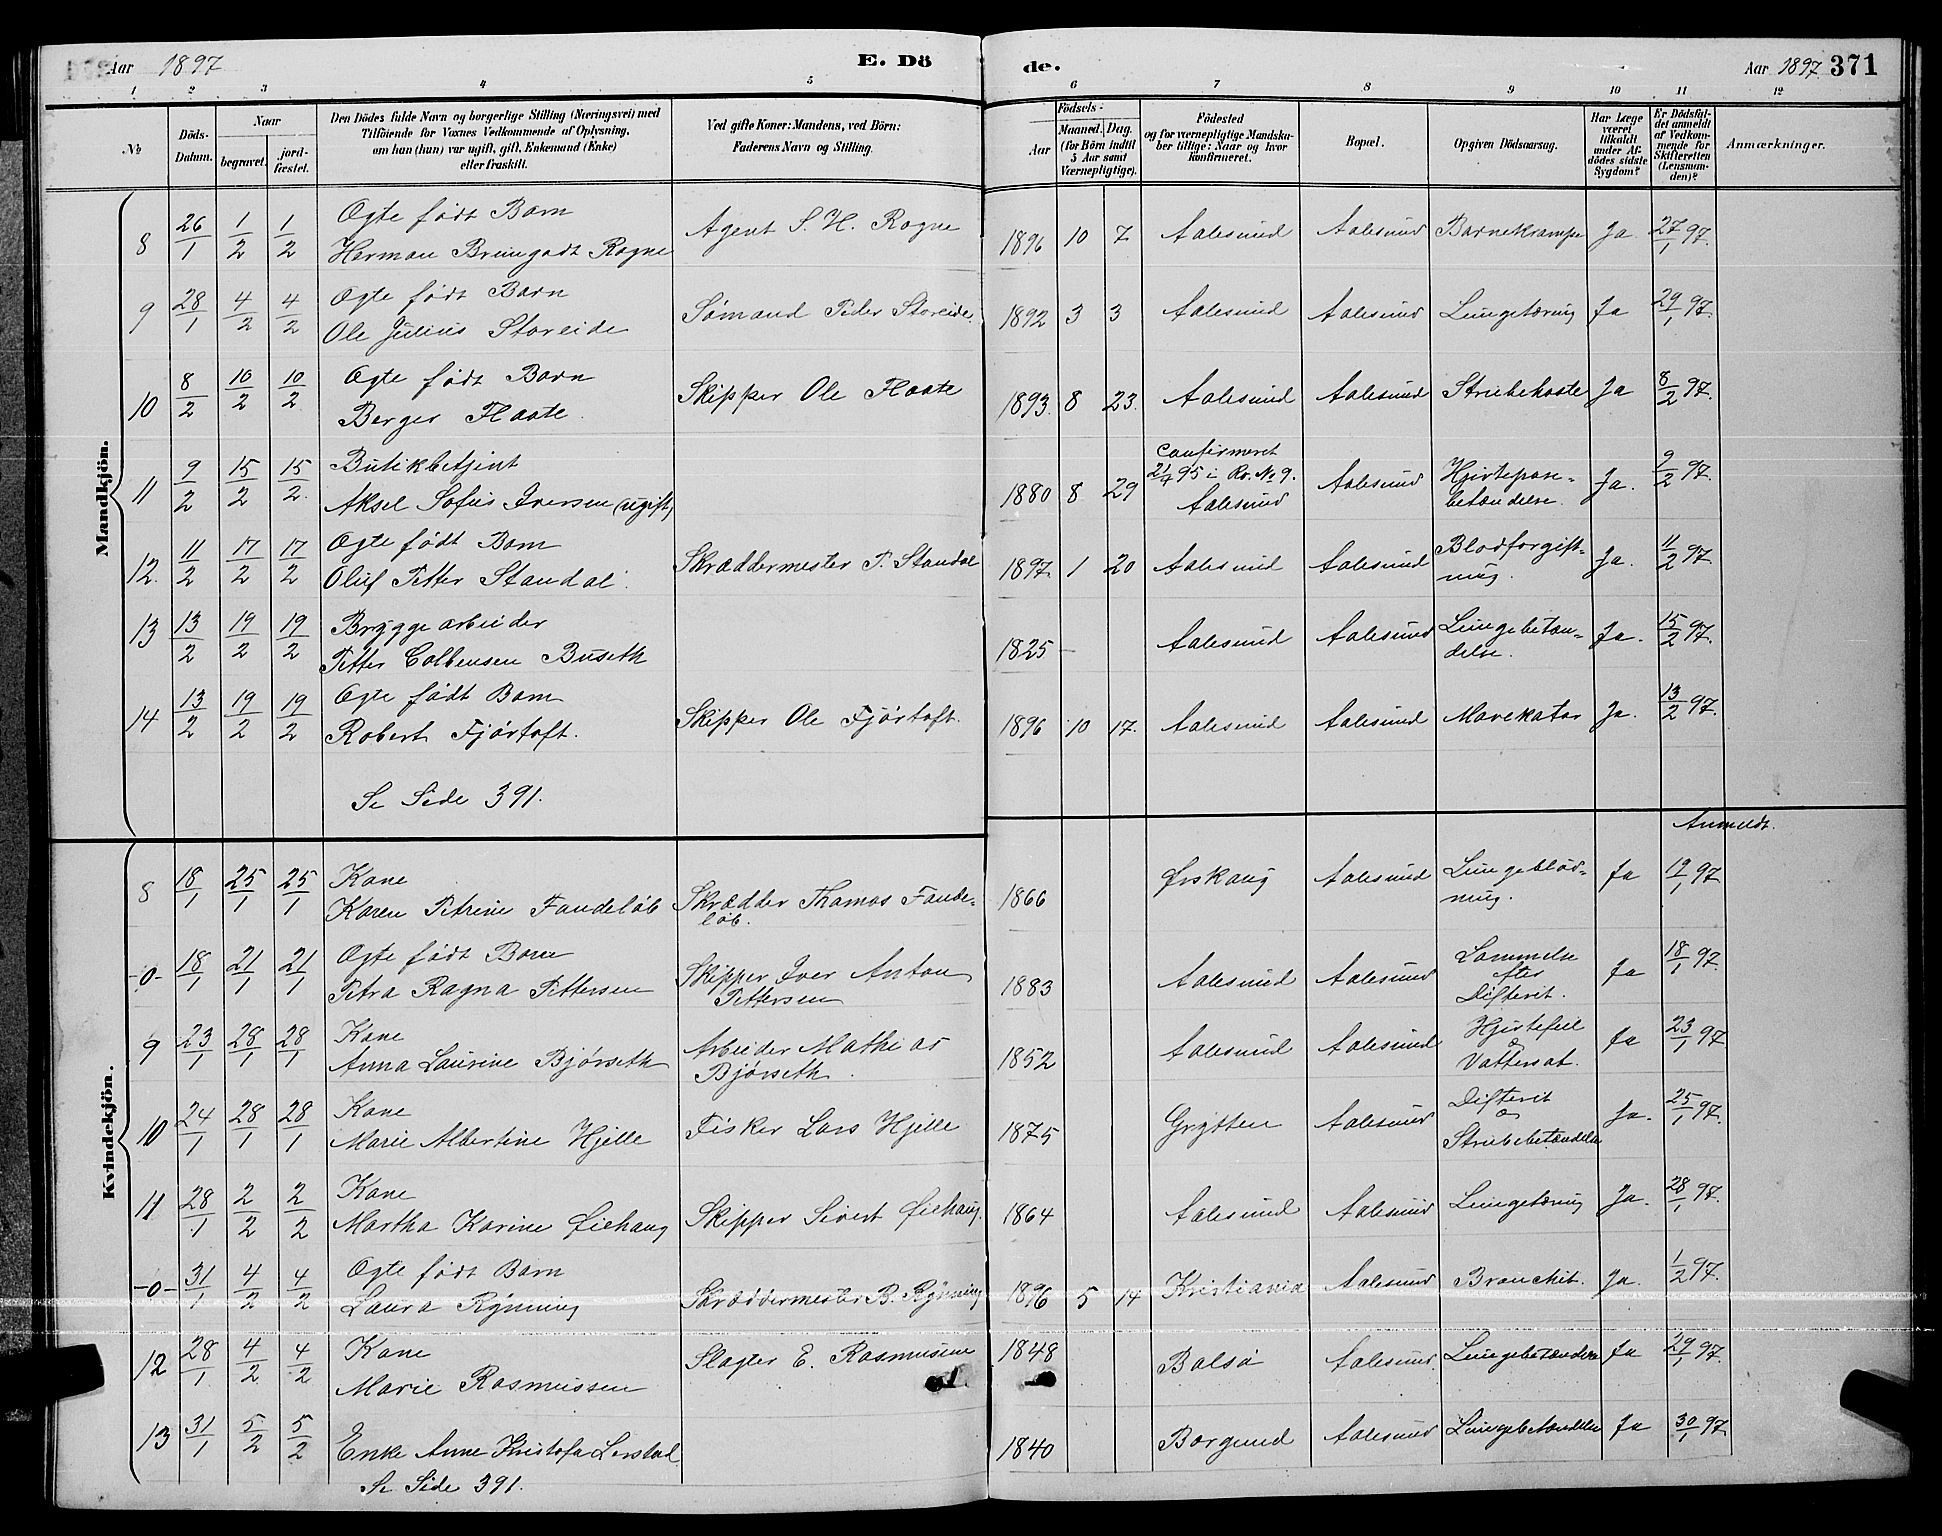 Aar 1897 E. Dö
de. Aar 1897 371
1 2 3 4 5 6 7 8 9 10 11 12
№ Döds-Datum. Naar begravet. jord-fæstet. Den Dödes fulde Navn og borgerlige Stilling (Næringsvei) med Tilföiende for Voxnes Vedkommende af Oplysning, om han (hun) var ugift, gift, Enkemand (Enke) eller fraskilt. Ved gifte Koner: Mandens, ved Börn: Faderens Navn og Stilling.
Födsels- Aar Maaned. Dag. (for Börn indtil 5 Aar samt Værnepligtige). Födested og for værnepligtige Mandskaber tillige: Naar og hvor konfirmeret. Bopæl. Opgiven Dödsaarsag. Har Læge været tilkaldt under Afdödes sidste Sygdom? Er Dödsfaldet anmeldt af Vedkommende for Skifteretten (Lensmanden)? Anmærkninger.
Mandkjön.
8 26/1 1/2 1/2 Ægte født Barn Herman Breungodt Rogne Agent S. H. Rogne 1896 10 7 Aalesund Aalesund Barnekrampe Ja 27/1 97.
9 28/1 4/2 4/2 Ægte født Barn Ole Julius Storeide Sømand Peder Storeide. 1892 3 3 Aalesund Aalesund Lungetæring Ja 29/1 97.
10 8/2 10/2 10/2 Ægte født Barn Berger Flaate. Skipper Ole Flaate 1893. 8 23. Aalesund Aalesund Strubehoste Ja 8/2 97.
11 9/2 15/2 15/2 Butikbetjent Aksel Sofus Iversen (ugift) 1880 8 29 Confirmeret 21/4 95 i Kr. No 9. Aalesund Aalesund Hjertepose-betændelse. Ja. 9/2 97.
12. 11/2 17/2 17/2 Ægte født Barn Oluf Petter Standal. Skræddermester P. Standal 1897 1 20 Aalesund Aalesund Blodforgift-ning. Ja. 11/2 97
13 13/2 19/2 19/2 Bryggearbeider Petter Colbensen Buseth 1825 - Aalesund Aalesund Lungebetæn-delse. Ja. 15/2 97.
14 13/2 19/2 19/2 Ægte født Barn Robert Fjørtoft. Skipper Ole Fjørtoft. 1896 10 17. Aalesund Aalesund Mavekatar Ja. 13/2 97.
Se Side 391.
Kvindekjön.
Anmeldt.
8 18/1 25/1 25/1 Kone Karen Petrine Fandeløb Skrædder Thomas Fande-løb. 1866 Ørskoug Aalesund Lungeblød-ning. Ja 19/1 97
-0- 18/1 21/1 21/1 Ægte født Barn Petra Ragna Pettersen Skipper Iver Anton Pettersen 1883 Aalesund Aalesund Lammelse efter Difterit. Ja 18/1 97.
9 23/1 28/1 28/1 Kone Anna Laurine Bjørseth Arbeider Mathias Bjørseth. 1852 Aalesund Aalesund Hjertefeil & Vattersot. Ja 23/1 97
10 24/1 28/1 28/1 Kone Marie Albertine Hjelle Fisker Lars Hjelle 1875 Grytten Aalesund Difterit & Strubebetændelse Ja. 25/1 97.
11 28/1 2/2 2/2 Kone Martha Karine Øiehaug Skipper Sivert Øiehaug. 1864 Aalesund Aalesund Lungetæring Ja. 28/1 97.
-0- 31/1 4/2 4/2 Ægte født Barn Laura Rynning Skræddermester B. Rynning 1896 5 14 Kristiania Aalesund Bronchit. Ja. 1/2 97.
12 28/1 4/2 4/2 Kone Marie Rasmussen Slagter E. Rasmussen 1848 Bolsø Aalesund. Lungebetændelse Ja 29/1 97.
13 31/1 5/2 5/2 Enke Anne Kristofa Lerstad 1840 Borgund Aalesund Lungebetændelse Ja 30/1 97
Se Side 391.